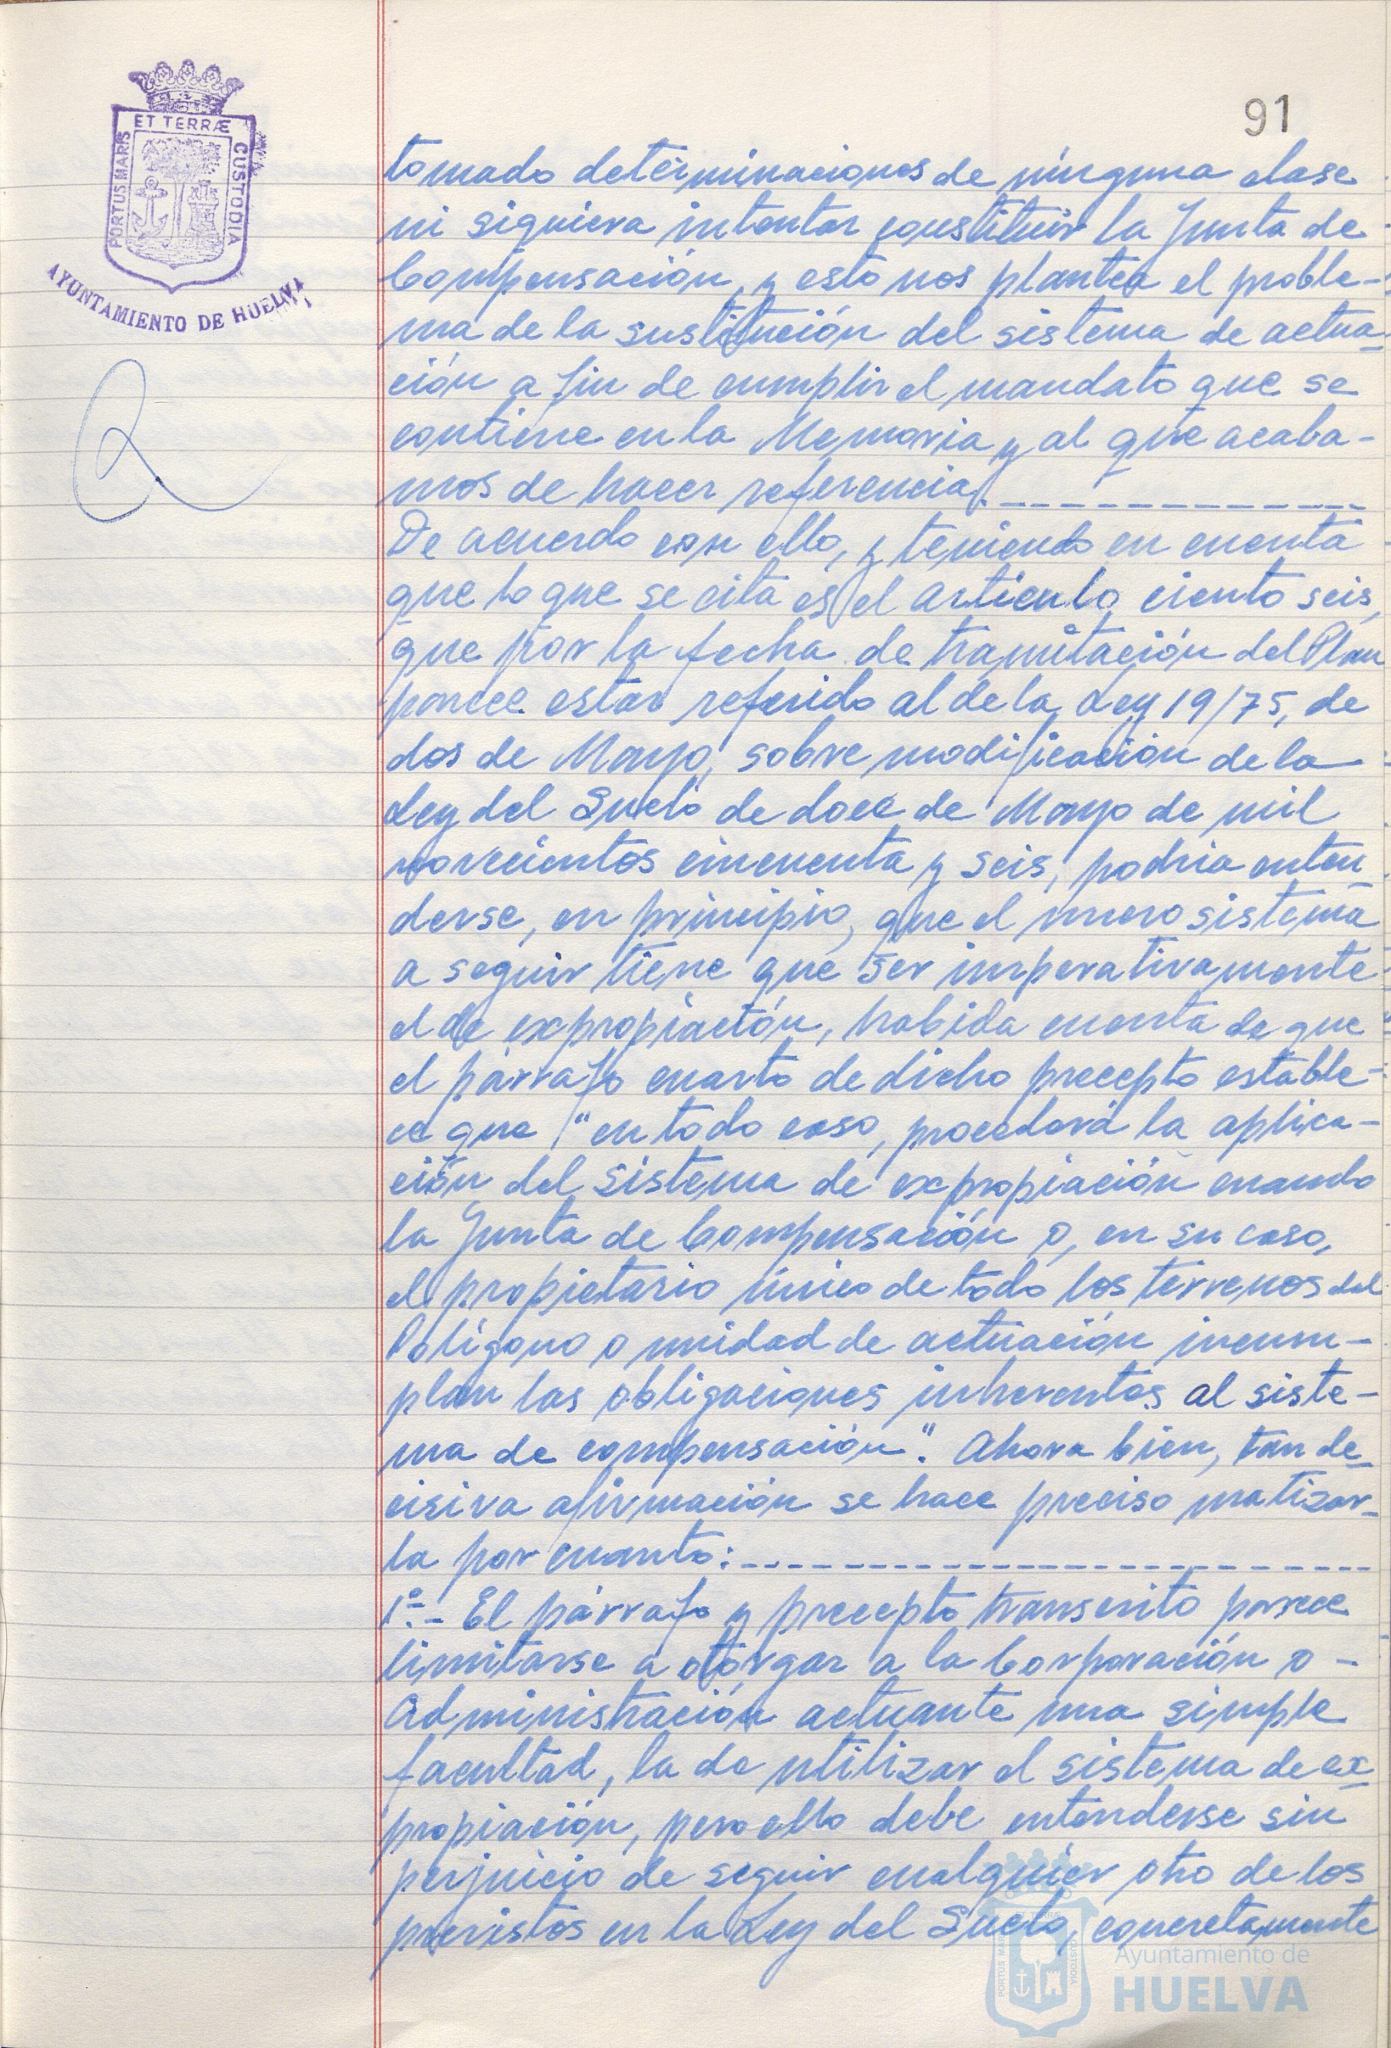 91
ET TERRÆ
PORTUS MARIS
CUSTODIA
AYUNTAMIENTO DE HUELVA
tomado determinaciones de ninguna clase
ni siquiera intentar constituir la Junta de
Compensación, y esto nos plantea el proble-
ma de la sustitución del sistema de actua-
ción a fin de cumplir el mandato que se
contiene en la Memoria y al que acaba-
mos de hacer referencia.
De acuerdo con ello, y teniendo en cuenta
que lo que se cita es el artículo ciento seis,
que por la fecha de tramitación del Plan
parece estar referido al de la Ley 19/75, de
dos de Mayo, sobre modificación de la
Ley del Suelo de doce de Mayo de mil
novecientos cincuenta y seis, podría enten-
derse, en principio, que el nuevo sistema
a seguir tiene que ser imperativamente
el de expropiación, habida cuenta de que
el párrafo cuarto de dicho precepto estable-
ce que "en todo caso, procederá la aplica-
ción del sistema de expropiación cuando
la Junta de Compensación o, en su caso,
el propietario único de todo los terrenos del
Polígono o unidad de actuación incum-
plan las obligaciones inherentes al siste-
ma de compensación". Ahora bien, tan de-
cisiva afirmación se hace preciso matizar-
la por cuanto:
1º.- El párrafo y precepto transcrito parece
limitarse a otorgar a la Corporación o -
Administración actuante una simple
facultad, la de utilizar el sistema de ex-
propiación, pero ello debe entenderse sin
perjuicio de seguir cualquier otro de los
previstos en la Ley del Suelo, concretamente
Ayuntamiento de
HUELVA